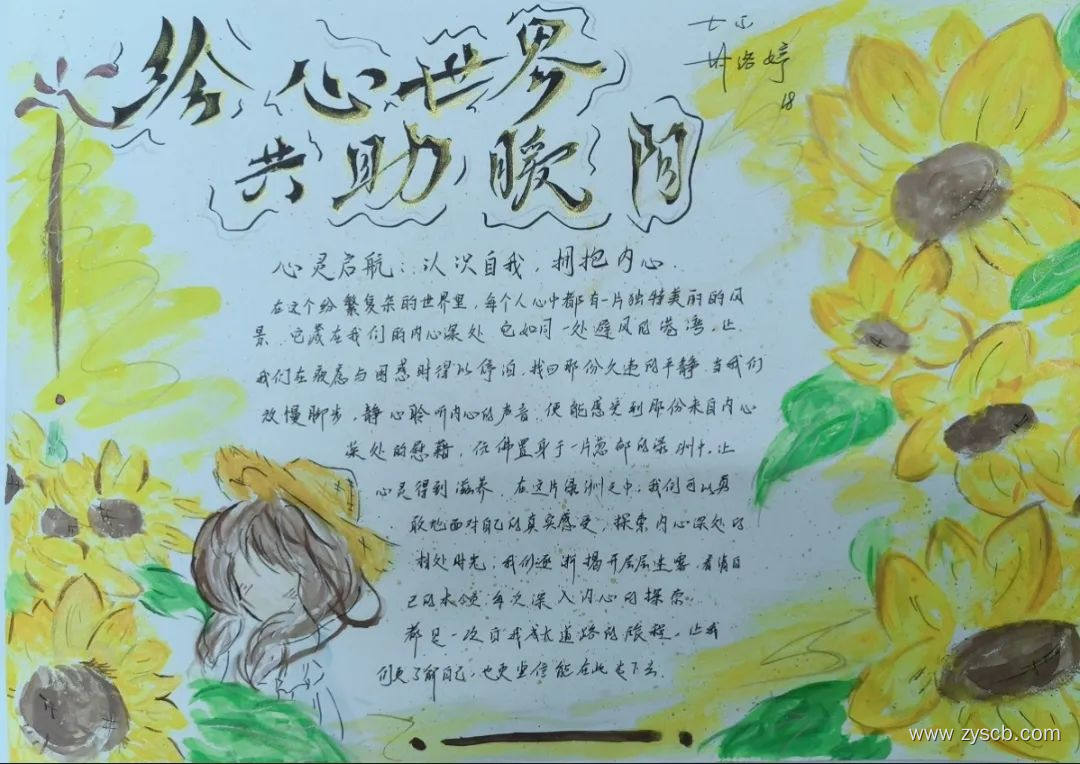 绘心世界
共助暖阳
七
洛婷
18
心灵启航：认次自我，拥抱内心.
在这个纷繁复杂的世界里，每个人心中都有一片独特美丽的风
景.它藏在我们的内心深处 它如同一处避风的港湾，让
我们在疲惫与困惑时得以停泊，找回那份久违的平静.当我们
放慢脚步，静心聆听内心的声音，便能感受到那份来自内心
深处的慰藉，仿佛置身于一片葱郁的绿洲中，让
心灵得到滋养.在这片绿洲之中，我们可以勇
敢地面对自己的真实感受，探索内心深处的
相处时光，我们逐渐揭开层层迷雾，看清自
己的本 每次深入内心的探索.
都是一次自我成长道路的旅程，让我
们更了解自己，也更坚信能在此走下去.
www.zyscb.com